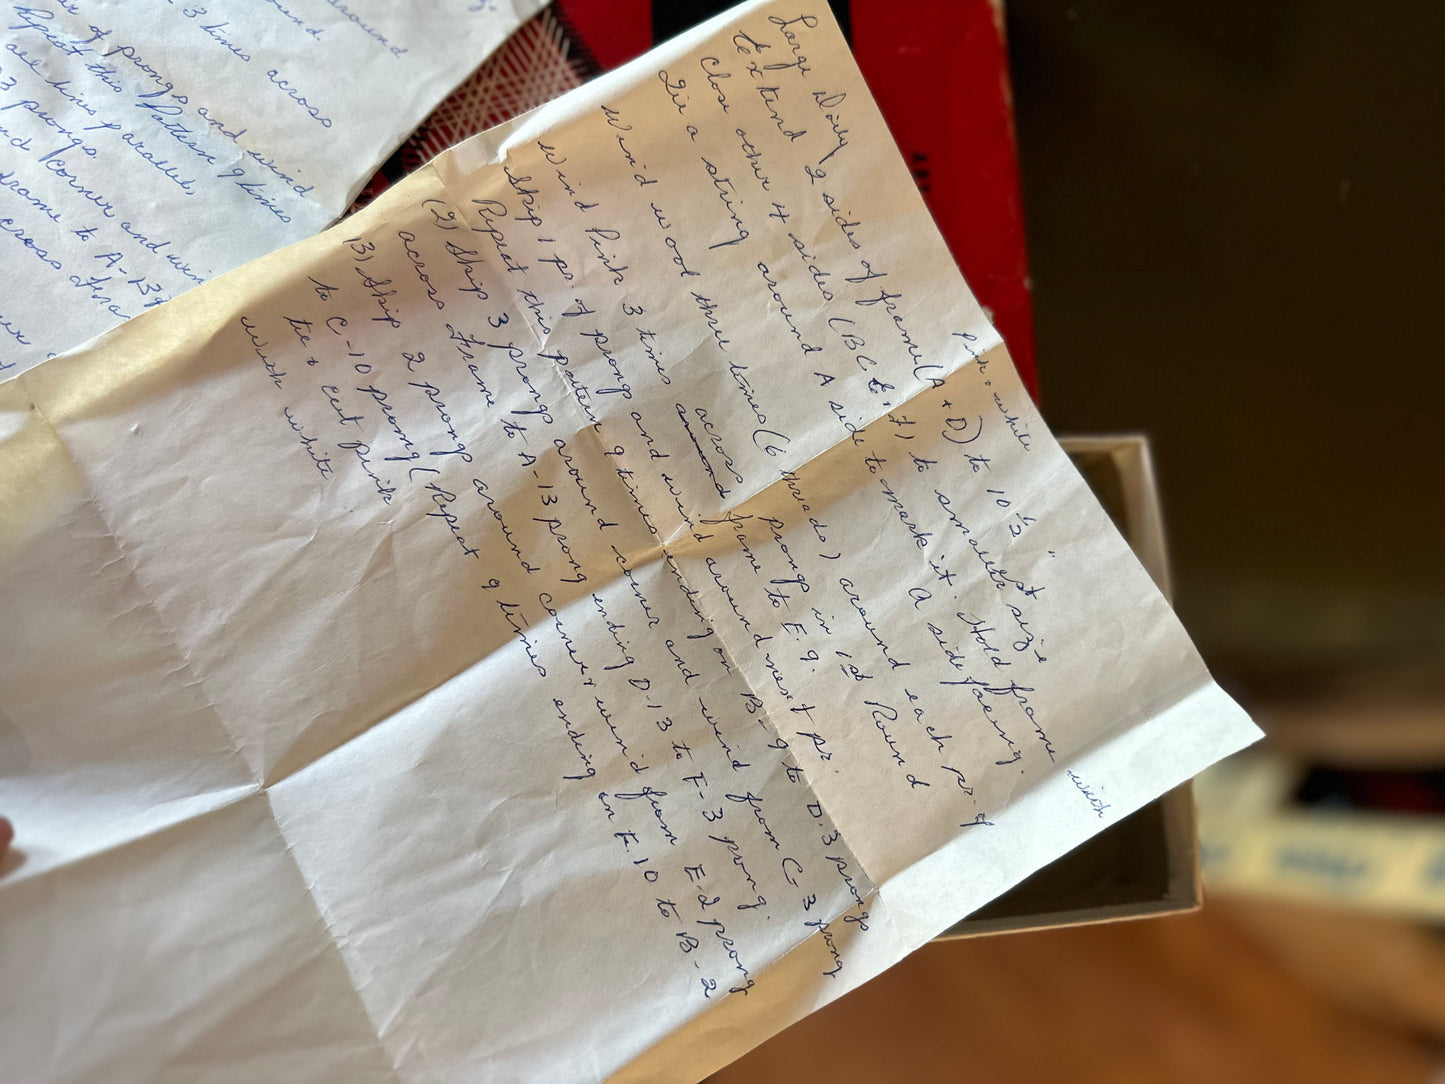 Pink + white
Large Doily
Extend 2 sides of frame (A + D) to 10½"
Close other 4 sides (BCE + F) to smallest size. Hold frame with
Tie a string around A side to mark it. A side facing.
Wind wool three times (6 threads) around each pr. of
prongs in 1st Round
Wind Pink 3 times across frame to E.9.
Wind
Skip 1 pr. of prongs and wind around next pr.
Repeat this pattern 9 times ending on B-9 to D.3 prongs
(2) Skip 3 prongs around corner and wind from C-3 prong
across frame to A-13 prong ending D-13 to F-3 prong.
(3) Skip 2 prongs around corner + wind from E-2 prong
to C-10 prong (Repeat 9 times ending on F.10 to B-2
tie + cut pink
with white
around
3 times across
of prongs and wind
Repeat this Pattern 9 times
all lines parallel
3 prongs.
and corner and win
frame to A-13
cross fra